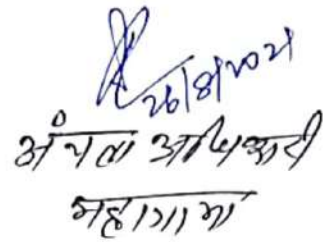 26/8/2021
अंचल अधिकारी
महागामा